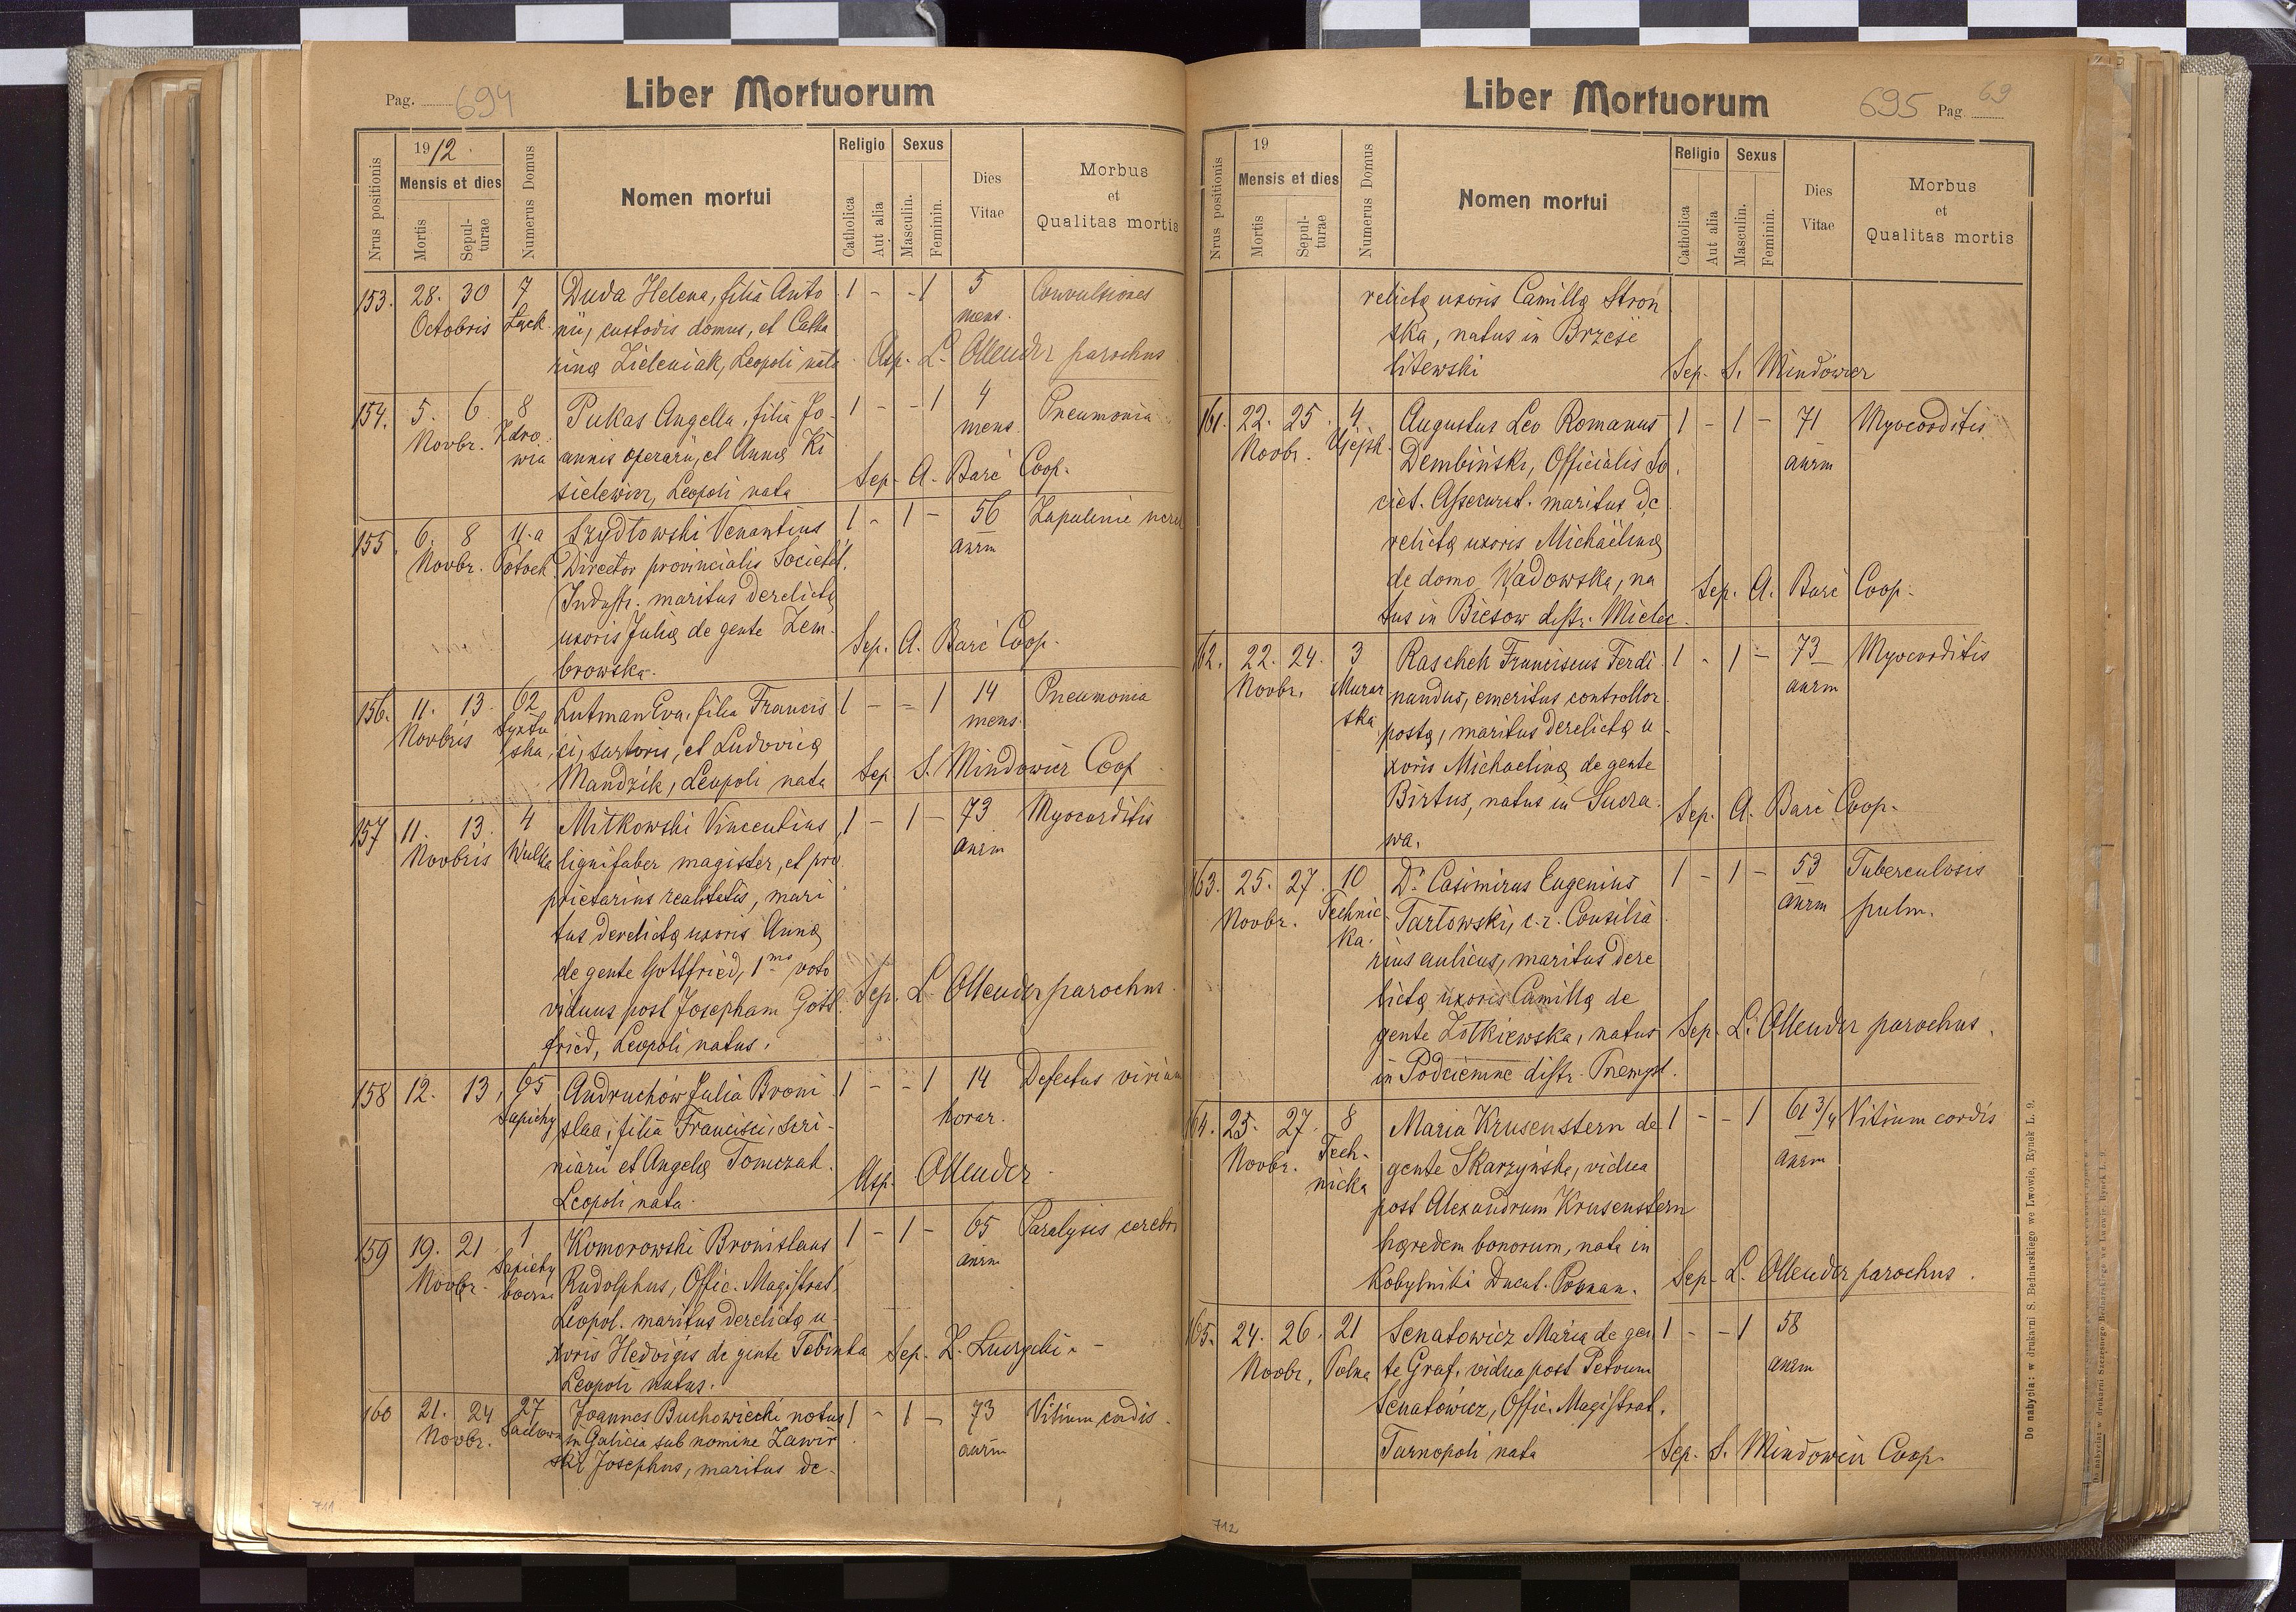 Pag. 694
Liber Mortuorum
Nrus positionis
1912.
Mensis et dies
Mortis
Sepulturae
Numerus Domus
Nomen mortui
Religio
Catholica
Aut alia
Sexus
Masculin.
Feminin.
Dies
Vitae
Morbus
et
Qualitas mortis
153. 28. 30 7 Duda Helena, filia Anto 1 - - 1 5 Convulsiones
Octobris Łąck. nii, custodis domus, et Catha mens.
rinę Zieleniak, Leopoli nata Asp. L. Ollender parochus
154. 5. 6. 8 Pukas Angella, filia Jo- 1 - - 1 4 Pneumonia
Novbr. Zdro annis operarii, et Annę Ki mens.
wia sielewicz, Leopoli nata Sep. A. Barć Coop.
155. 6. 8 11.a Szydłowski Venantius, 1 - 1 - 56 Zapalenie
Novbr. Potock. Director provincialis Societat. anrm
Industr. maritus derelictę
uxoris Julię de gente Zem-
browska. Sep. A. Barć Coop.
156. 11. 13. 62 Lutman Eva, filia Francis 1 - - 1 14 Pneumonia
Novbris Syxtu ci, sartoris, et Ludovicę mens.
ska Mandzik, Leopoli nata Sep. S. Mindowicz Coop
157 11. 13. 4 Mitkowski Vincentius, 1 - 1 - 73 Myocarditis
Novbris Wulka lignifaber magister, et pro anrm
prietarius realitatis, mari
tus derelictę uxoris Annę
de gente Gottfried, 1mo voto
viduus post Josepham Gott Sep. L. Ollender parochus
fried, Leopoli natus.
158 12. 13, 65 Andruchów Julia Broni 1 - - 1 14 Defectus virium
Sapiehy slaa, filia Francisci, scri- horar.
niarii et Angelę Tomczak.
Leopoli nata. Asp. Ollender
159 19. 21 1 Komorowski Bronislaus 1 - 1 - 65 Paralysis cerebri
Novbr. Sapiehy Rudolphus, Offic. Magistrat. anrm
boczna Leopol. maritus derelictę u-
xoris Hedvigis de gente Tebinka Sep. Z.
Leopoli natus.
160 21. 24 27 Joannes Buchowiecki notus 1 - 1 - 73 Vitium cordis.
Novbr. Sadown in Galicia sub nomine Zawir anrm
ski Josephus, maritus de-
711
Liber Mortuorum
695 Pag. 69
Nrus positionis
19
Mensis et dies
Mortis
Sepulturae
Numerus Domus
Nomen mortui
Religio
Catholica
Aut alia
Sexus
Masculin.
Feminin.
Dies
Vitae
Morbus
et
Qualitas mortis
relictę uxoris Camillę Stroń
ska, natus in Brześć
litewski Sep. S. Mindowicz
161. 22. 25. 4. Augustus Leo Romanus 1 - 1 - 71 Myocarditis
Novbr. Ujejsk. Dembiński, Officialis So anrm
ciet. Assecurat. maritus de
relictę uxoris Michaëlinę
de domo Wadowska, na Sep. A. Barć Coop.
tus in Biesow distr. Mielec.
162. 22. 24. 3 Raschek Franciscus Ferdi 1 - 1 - 73 Myocarditis
Novbr. Murar nandus, emeritus controllor anrm
ska postę, maritus derelictę u
xoris Michaelinę de gente
Birtus, natus in Sucza. Sep. A. Barć Coop.
wa.
163. 25. 27. 10 Dr. Casimirus Eugenius 1 - 1 - 53 Tuberculosis
Novbr. Technic Tarłowski, c. r. Consilia anrm pulm.
ka. rius aulicus, maritus dere
lictę uxoris Camillę de
gente Żółkiewska, natus Sep. L. Ollender parochus.
in Podciemne distr. Przemysl.
164. 25. 27. 8 Maria Krusenstern de 1 - - 1 61 3/4 Vitium cordis
Novbr. Tech- gente Skarzyńska, vidua anrm
nicka post Alexandrum Krusenstern
hęredem bonorum, nata in
Kobylniki Ducat. Poznan. Sep. L. Ollender parochus.
165. 24. 26. 21 Senatowicz Maria de gen 1 - - 1 58
Novbr. Polna te Graf, vidua post Petrum anrm
Senatowicz, Offic. Magistrat.
Tarnopoli nata Sep. S. Mindowicz Coop.
Do nabycia: w drukarni S. Bednarskiego we Lwowie, Rynek L. 9.
712